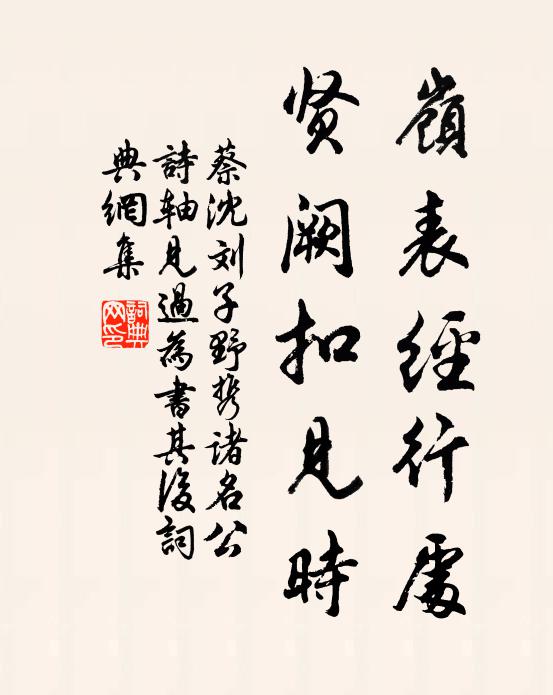 嶺表經行處
贤阙扣見時
蔡沈刘子野携诸名公
詩軸見過為書其後詞
典網集
詞典网印